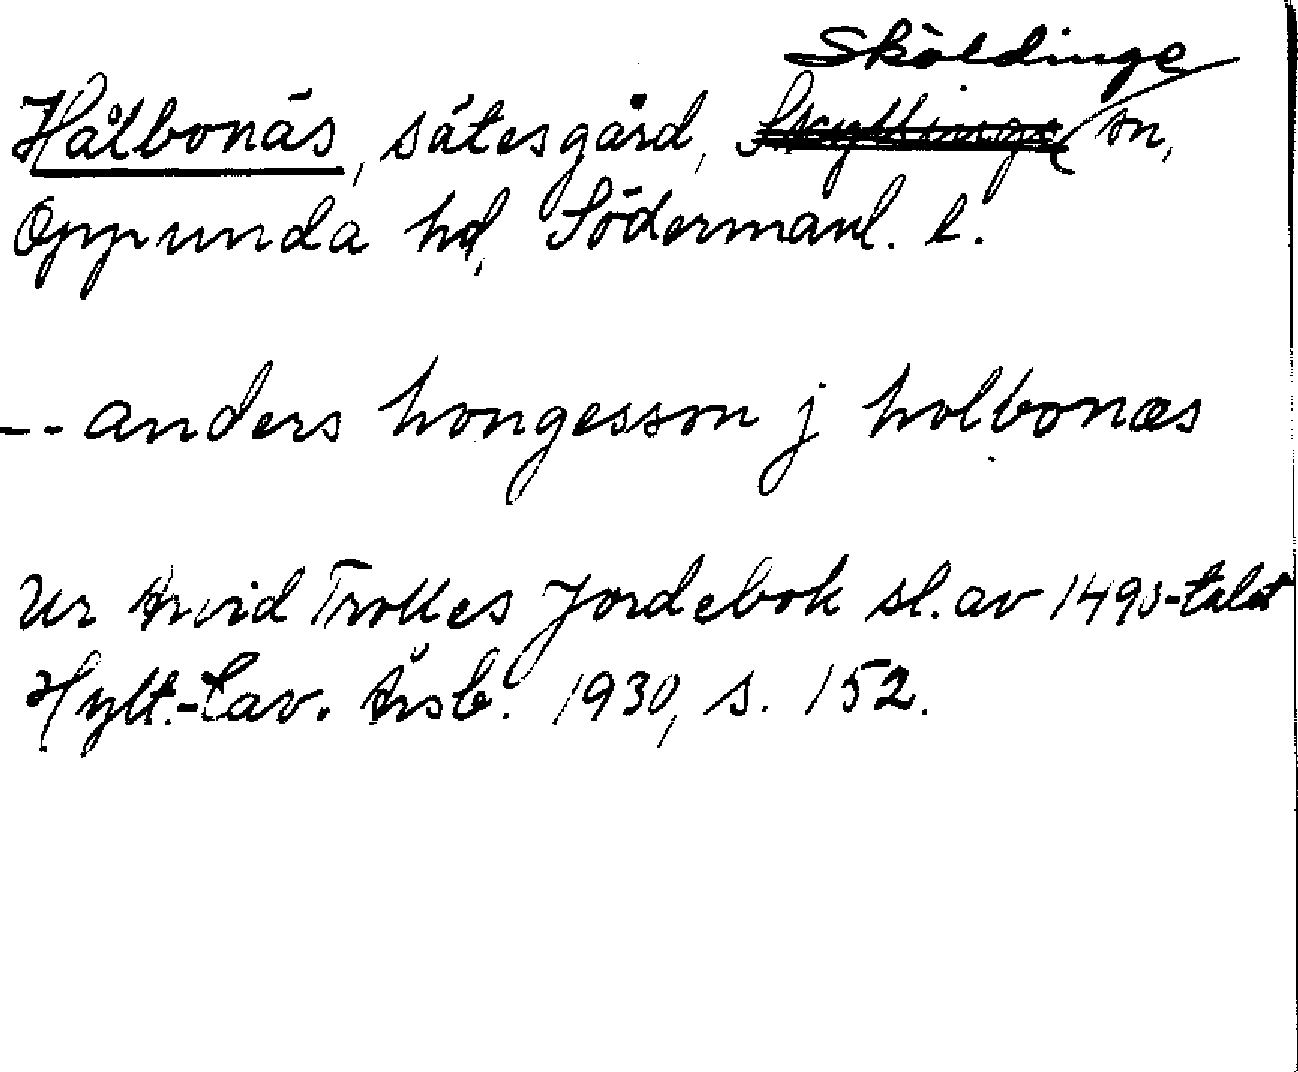 Sköldinge
Hålbonäs, sätesgård, Skyttinge sn,
Oppunda hd, Södermanl. l.
-- anders hongesson j holbonæs
Ur Arvid Trolles Jordebok sl. av 1490-talet
Hylt.-Cav. Årsb. 1930, s. 152.